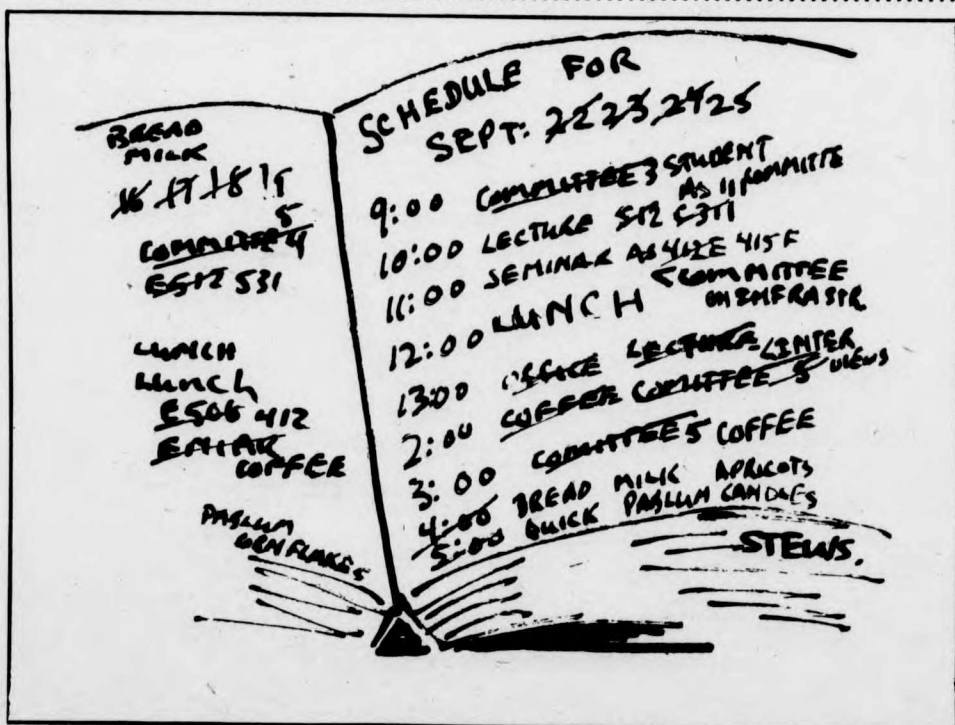 BREAD
MILK
16 17 18 19
5
COMMITTEE 4
E512 531
LUNCH
LUNCH
E506 412
COFFEE
PABLUM
CORNFLAKES
SCHEDULE FOR
SEPT: 22 23, 24 25
9:00 COMMITTEE 3 STUDENT
AS 11 KOMMITTE
10:00 LECTURE 512 5311
11:00 SEMINAR AS 412E 415F
12:00 LUNCH COMMITTEE
ON INFRA STR.
13:00 OFFICE LECTURE
2:00 COFFEE COMITTEE 5 VIEWS
3:00 COMMITTEE 5 COFFEE
4:00 BREAD MILK APRICOTS
5:00 QUICK PABLUM CANDLES
STEWS.